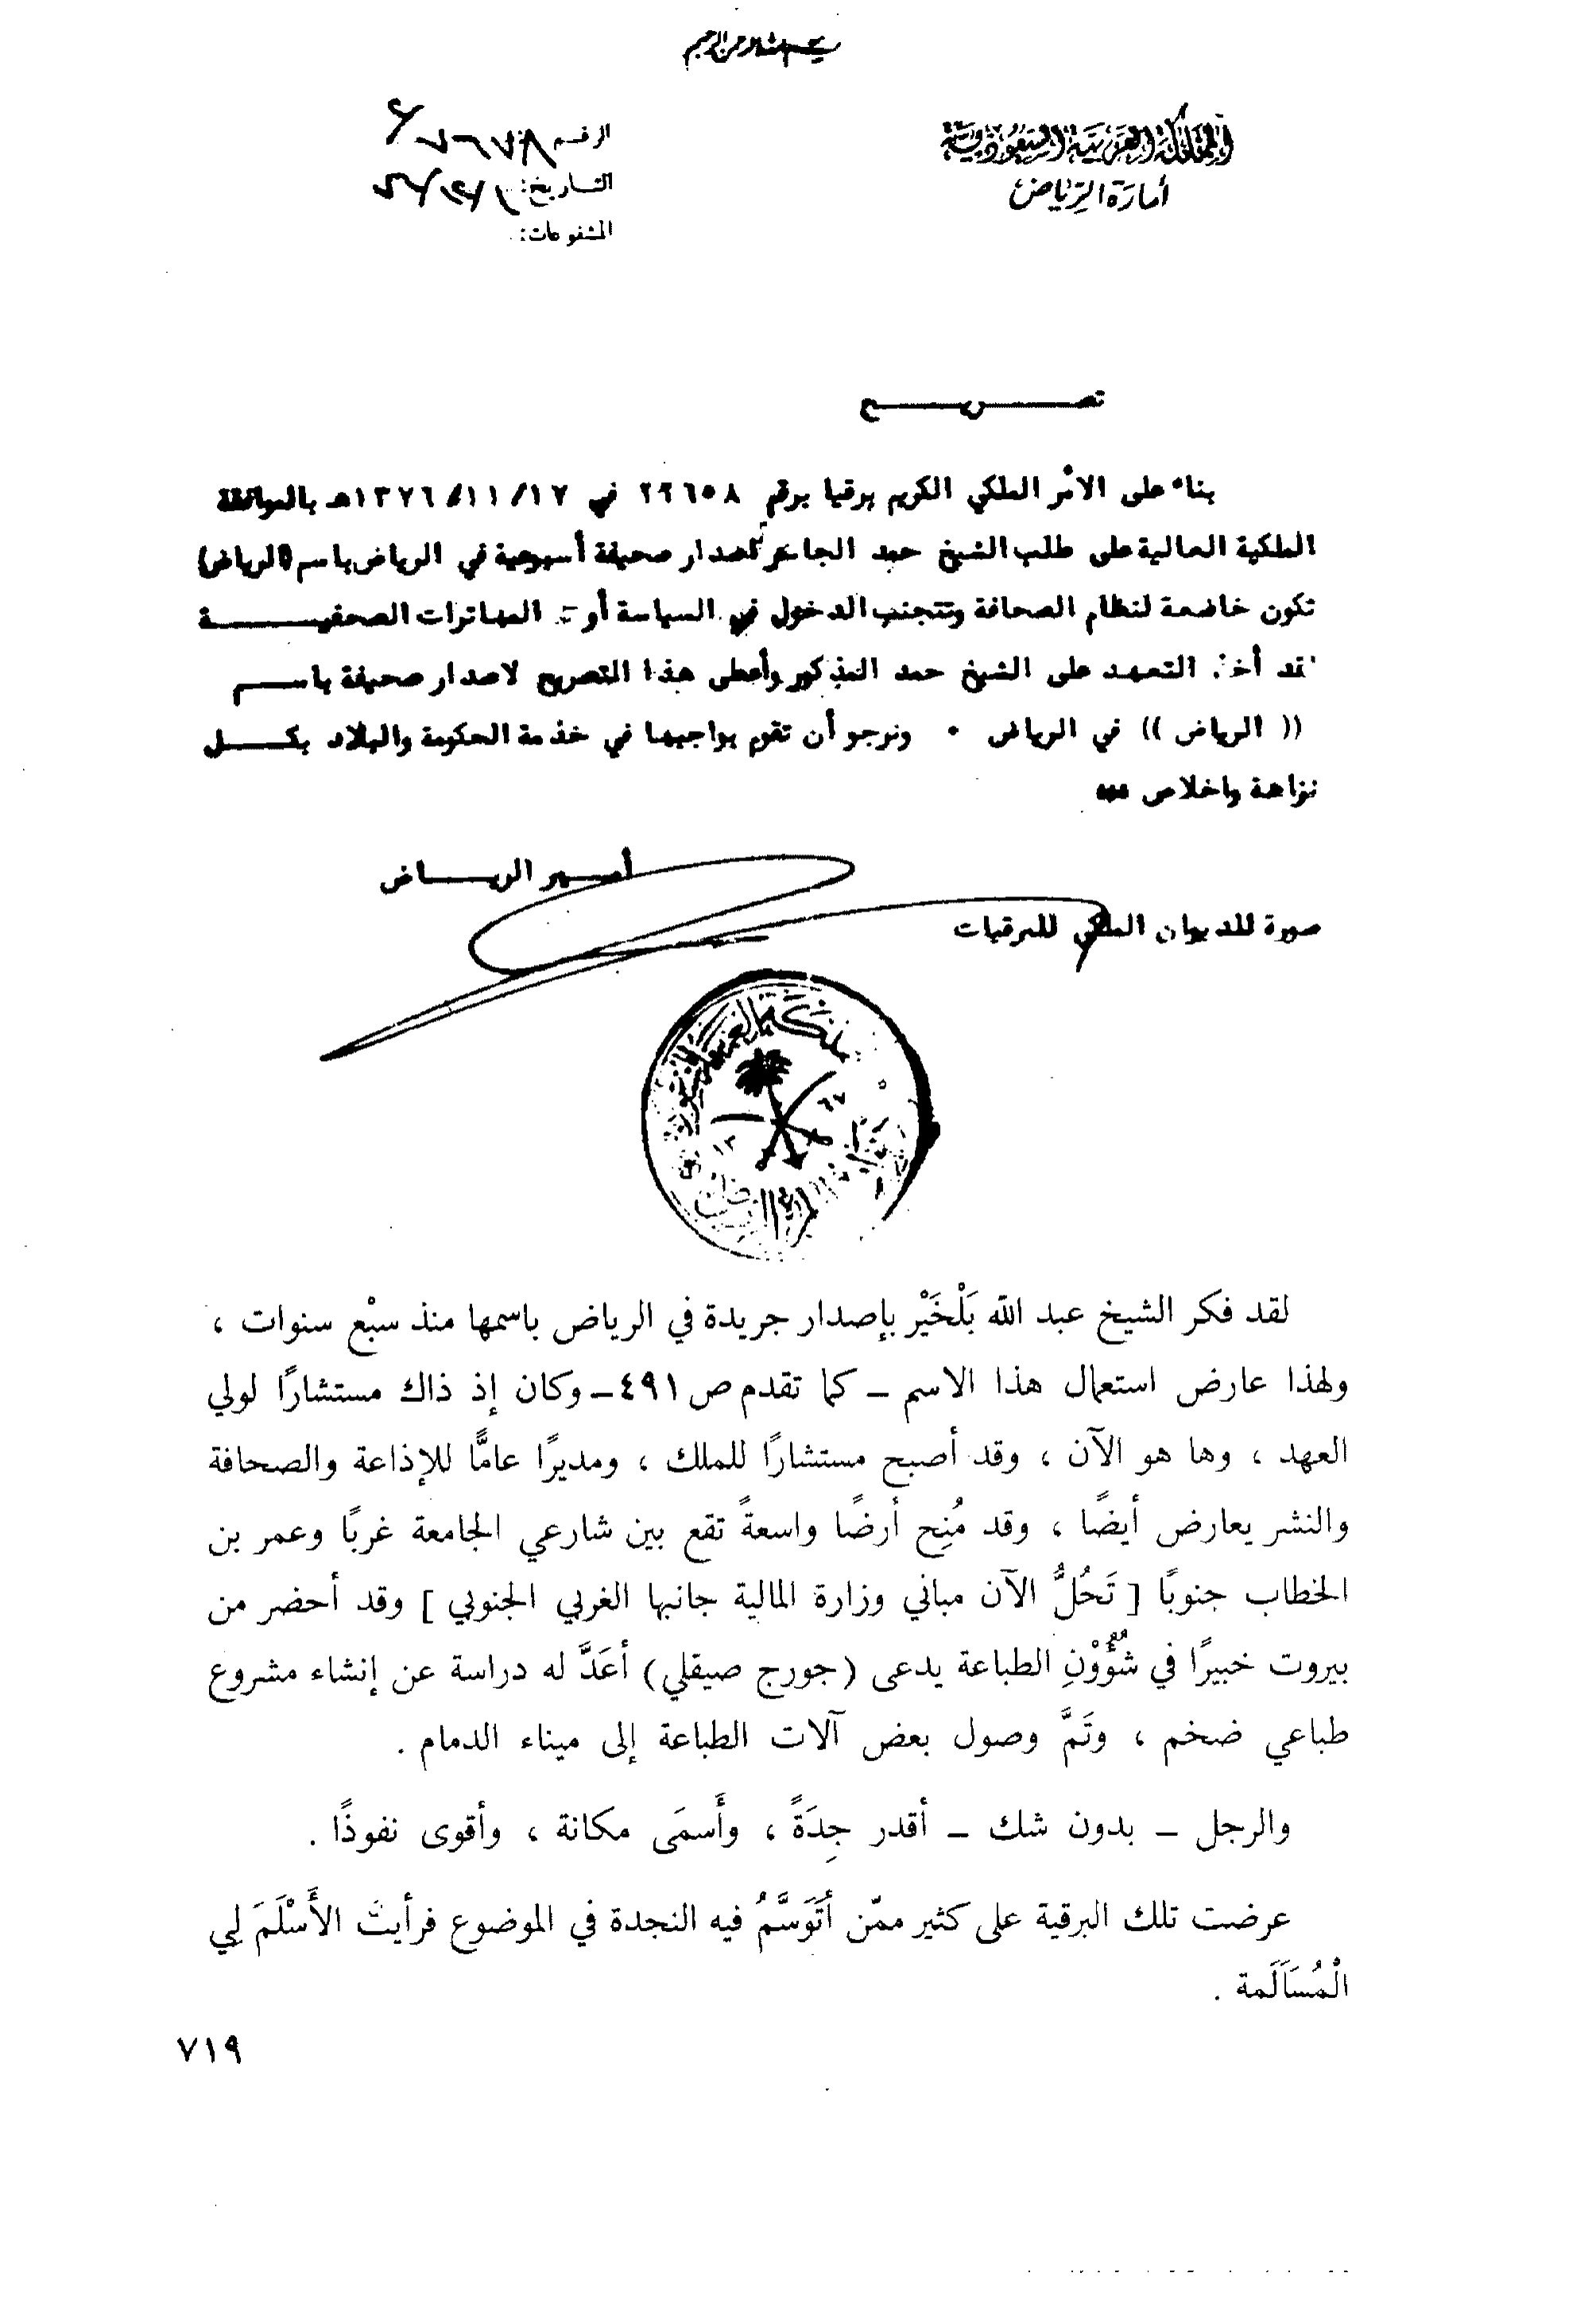 بسم الله الرحمن الرحيم
المملكة العربية السعودية
أمارة الرياض
الرقم
التاريخ:
المشفوعات:
تصريح
بناء على الامر الملكي الكريم برقيا برقم ٢٢٦٥٨ في ١٣٧٦/١١/١٧هـ بالموافقة
الملكية العالية على طلب الشيخ حمد الجاسر لاصدار صحيفة أسبوعية في الرياض باسم (الرياض)
تكون خاضعة لنظام الصحافة وتتجنب الدخول في السياسة أو المهاترات الصحفية
فقد أخذ التعهد على الشيخ حمد المذكور وأعطى هذا التصريح لاصدار صحيفة باسم
(( الرياض )) في الرياض ٠ ونرجو أن تقوم بواجبها في خدمة الحكومة والبلاد بكل
نزاهة واخلاص ،،،
أمير الرياض
صورة للديوان الملكي للبرقيات
لقد فكر الشيخ عبد الله بَلْخَيْر بإصدار جريدة في الرياض باسمها منذ سبْع سنوات ،
ولهذا عارض استعمال هذا الاسم – كما تقدم ص ٤٩١ – وكان إذ ذاك مستشارًا لولي
العهد ، وها هو الآن ، وقد أصبح مستشارًا للملك ، ومديرًا عامًّا للإذاعة والصحافة
والنشر يعارض أيضًا ، وقد مُنِح أرضًا واسعةً تقع بين شارعي الجامعة غربًا وعمر بن
الخطاب جنوبًا [ تَحُلُّ الآن مباني وزارة المالية جانبها الغربي الجنوبي ] وقد أحضر من
بيروت خبيرًا في شُؤُوْنِ الطباعة يدعى (جورج صيقلي) أعَدَّ له دراسة عن إنشاء مشروع
طباعي ضخم ، وتَمَّ وصول بعض آلات الطباعة إلى ميناء الدمام .
والرجل – بدون شك – أقدر جِدَةً ، وأَسمَى مكانة ، وأقوى نفوذًا .
عرضت تلك البرقية على كثير ممّن أتَوَسَّمُ فيه النجدة في الموضوع فرأيتُ الأَسْلَمَ لِي
الْمُسَالَمة .
٧١٩